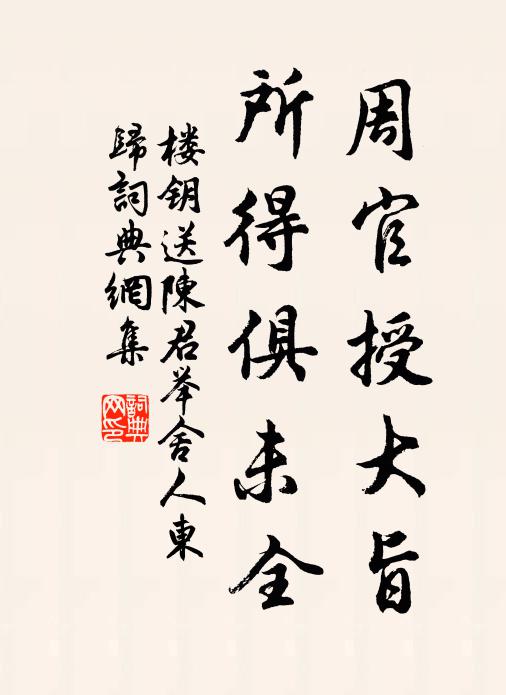 周官授大旨
所得俱未全
楼钥送陳君举舍人東
歸詞典網集
詞典
网印